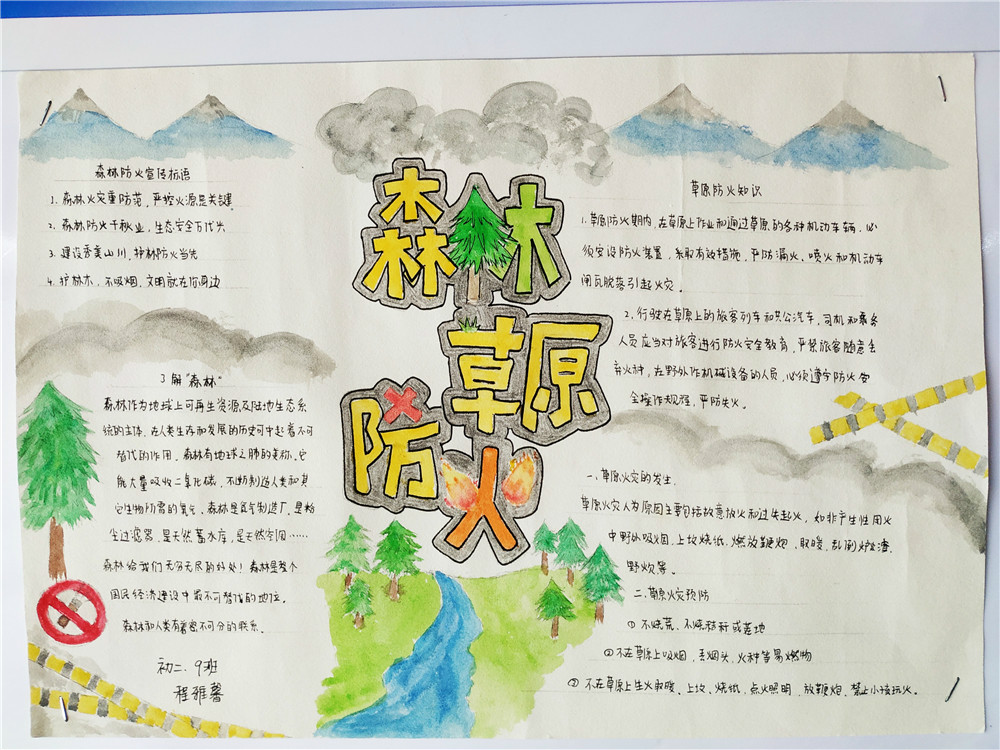 森林防火宣传标语
1. 森林火灾重防范，严控火源是关键。
2. 森林防火千秋业，生态安全万代兴
3. 建设秀美山川，护林防火当先
4. 护林木，不吸烟，文明就在你身边
了解“森林”
森林作为地球上可再生资源及陆地生态系
统的主体，在人类生存和发展的历史中起着不可
替代的作用，森林有地球之肺的美称。它
能大量吸收二氧化碳，不断制造人类和其
它生物所需的氧气，森林是氧气制造厂，是粉
尘过滤器，是天然蓄水库，是天然空调……
森林给我们无穷无尽的好处！森林是整个
国民经济建设中最不可替代的地位。
森林和人类有着密不可分的联系。
初二.9班
程雅馨
森林
草原
防火
草原防火知识
1. 草原防火期内，在草原上作业和通过草原的各种机动车辆，必
须安设防火装置，采取有效措施，严防漏火、喷火和机动车
闸瓦脱落引起火灾。
2. 行驶在草原上的旅客列车和公共汽车，司机和乘务
人员应当对旅客进行防火安全教育，严禁旅客随意丢
弃火种，在野外作机械设备的人员，必须遵守防火安
全操作规程，严防失火。
一. 草原火灾的发生.
草原火灾人为原因主要包括故意放火和过失起火，如非产生性用火
中野外吸烟，上坟烧纸，燃放鞭炮，取暖，乱倒炉渣，
野炊等。
二. 草原火灾预防
① 不烧荒、不烧秸秆或茬地
② 不在草原上吸烟，丢烟头、火种等易燃物
③ 不在草原上生火取暖、上坟、烧纸，点火照明，放鞭炮，禁止小孩玩火。